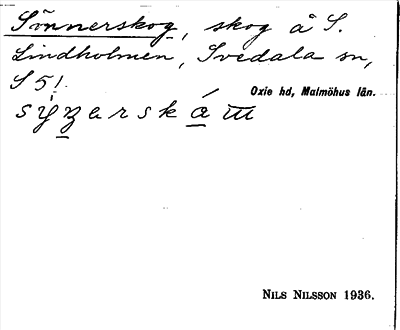 Sönnerskog, skog å S.
Lindholmen, Svedala sn,
S 5!
Oxie hd, Malmöhus län.
NILS NILSSON 1936.